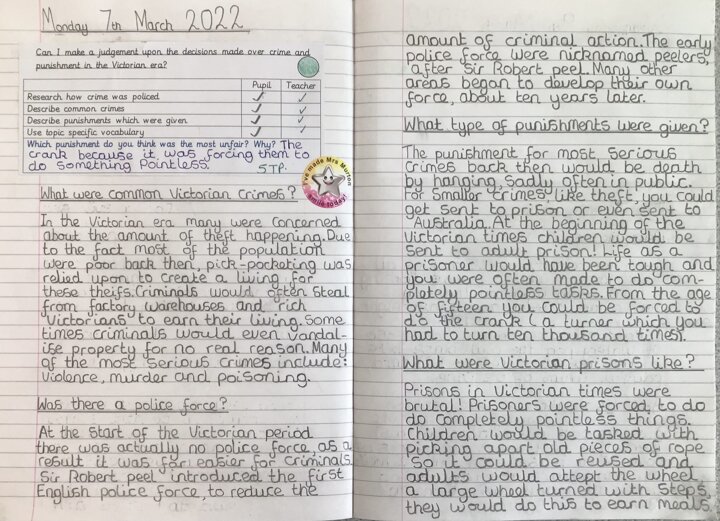 Monday 7th March 2022
Can I make a judgement upon the decisions made over crime and
punishment in the Victorian era?
Pupil Teacher
Research how crime was policed ✓ ✓
Describe common crimes ✓ ✓
Describe punishments which were given ✓ ✓
Use topic specific vocabulary ✓ ✓
Which punishment do you think was the most unfair? Why? The
crank because it was forcing them to
do something Pointless.
STP.
I've made Mrs Murton
smile today!
What were common Victorian Crimes?
In the Victorian era many were concerned
about the amount of theft happening. Due
to the fact most of the population
were poor back then, pick-pocketing was
relied upon to create a living for
these theifs. Criminals would often steal
from factory warehouses and rich
Victorians to earn their living. Some
times criminals would even vandal-
ise property for no real reason. Many
of the most serious crimes include:
violence, murder and poisoning.
Was there a police force?
At the start of the Victorian period
there was actually no police force as a
result it was far easier for criminals.
Sir Robert peel introduced the first
English police force, to reduce the
amount of criminal action. The early
police force were nicknamed peelers,
after Sir Robert peel. Many other
areas began to develop their own
force, about ten years later.
What type of punishments were given?
The punishment for most serious
crimes back then would be death
by hanging, sadly often in public.
For smaller crimes, like theft, you could
get sent to prison or even sent to
Australia. At the beginning of the
Victorian times children would be
sent to adult prison! Life as a
prisoner would have been tough and
you were often made to do com-
pletely pointless tasks. From the age
of fifteen you could be forced to
do the crank (a turner which you
had to turn ten thousand times).
What were Victorian prisons like?
Prisons in Victorian times were
brutal! Prisoners were forced to do
do completely pointless things.
Children would be tasked with
picking apart old pieces of rope
so it could be reused and
adults would attept the wheel
a large wheel turned with steps,
they would do this to earn meals